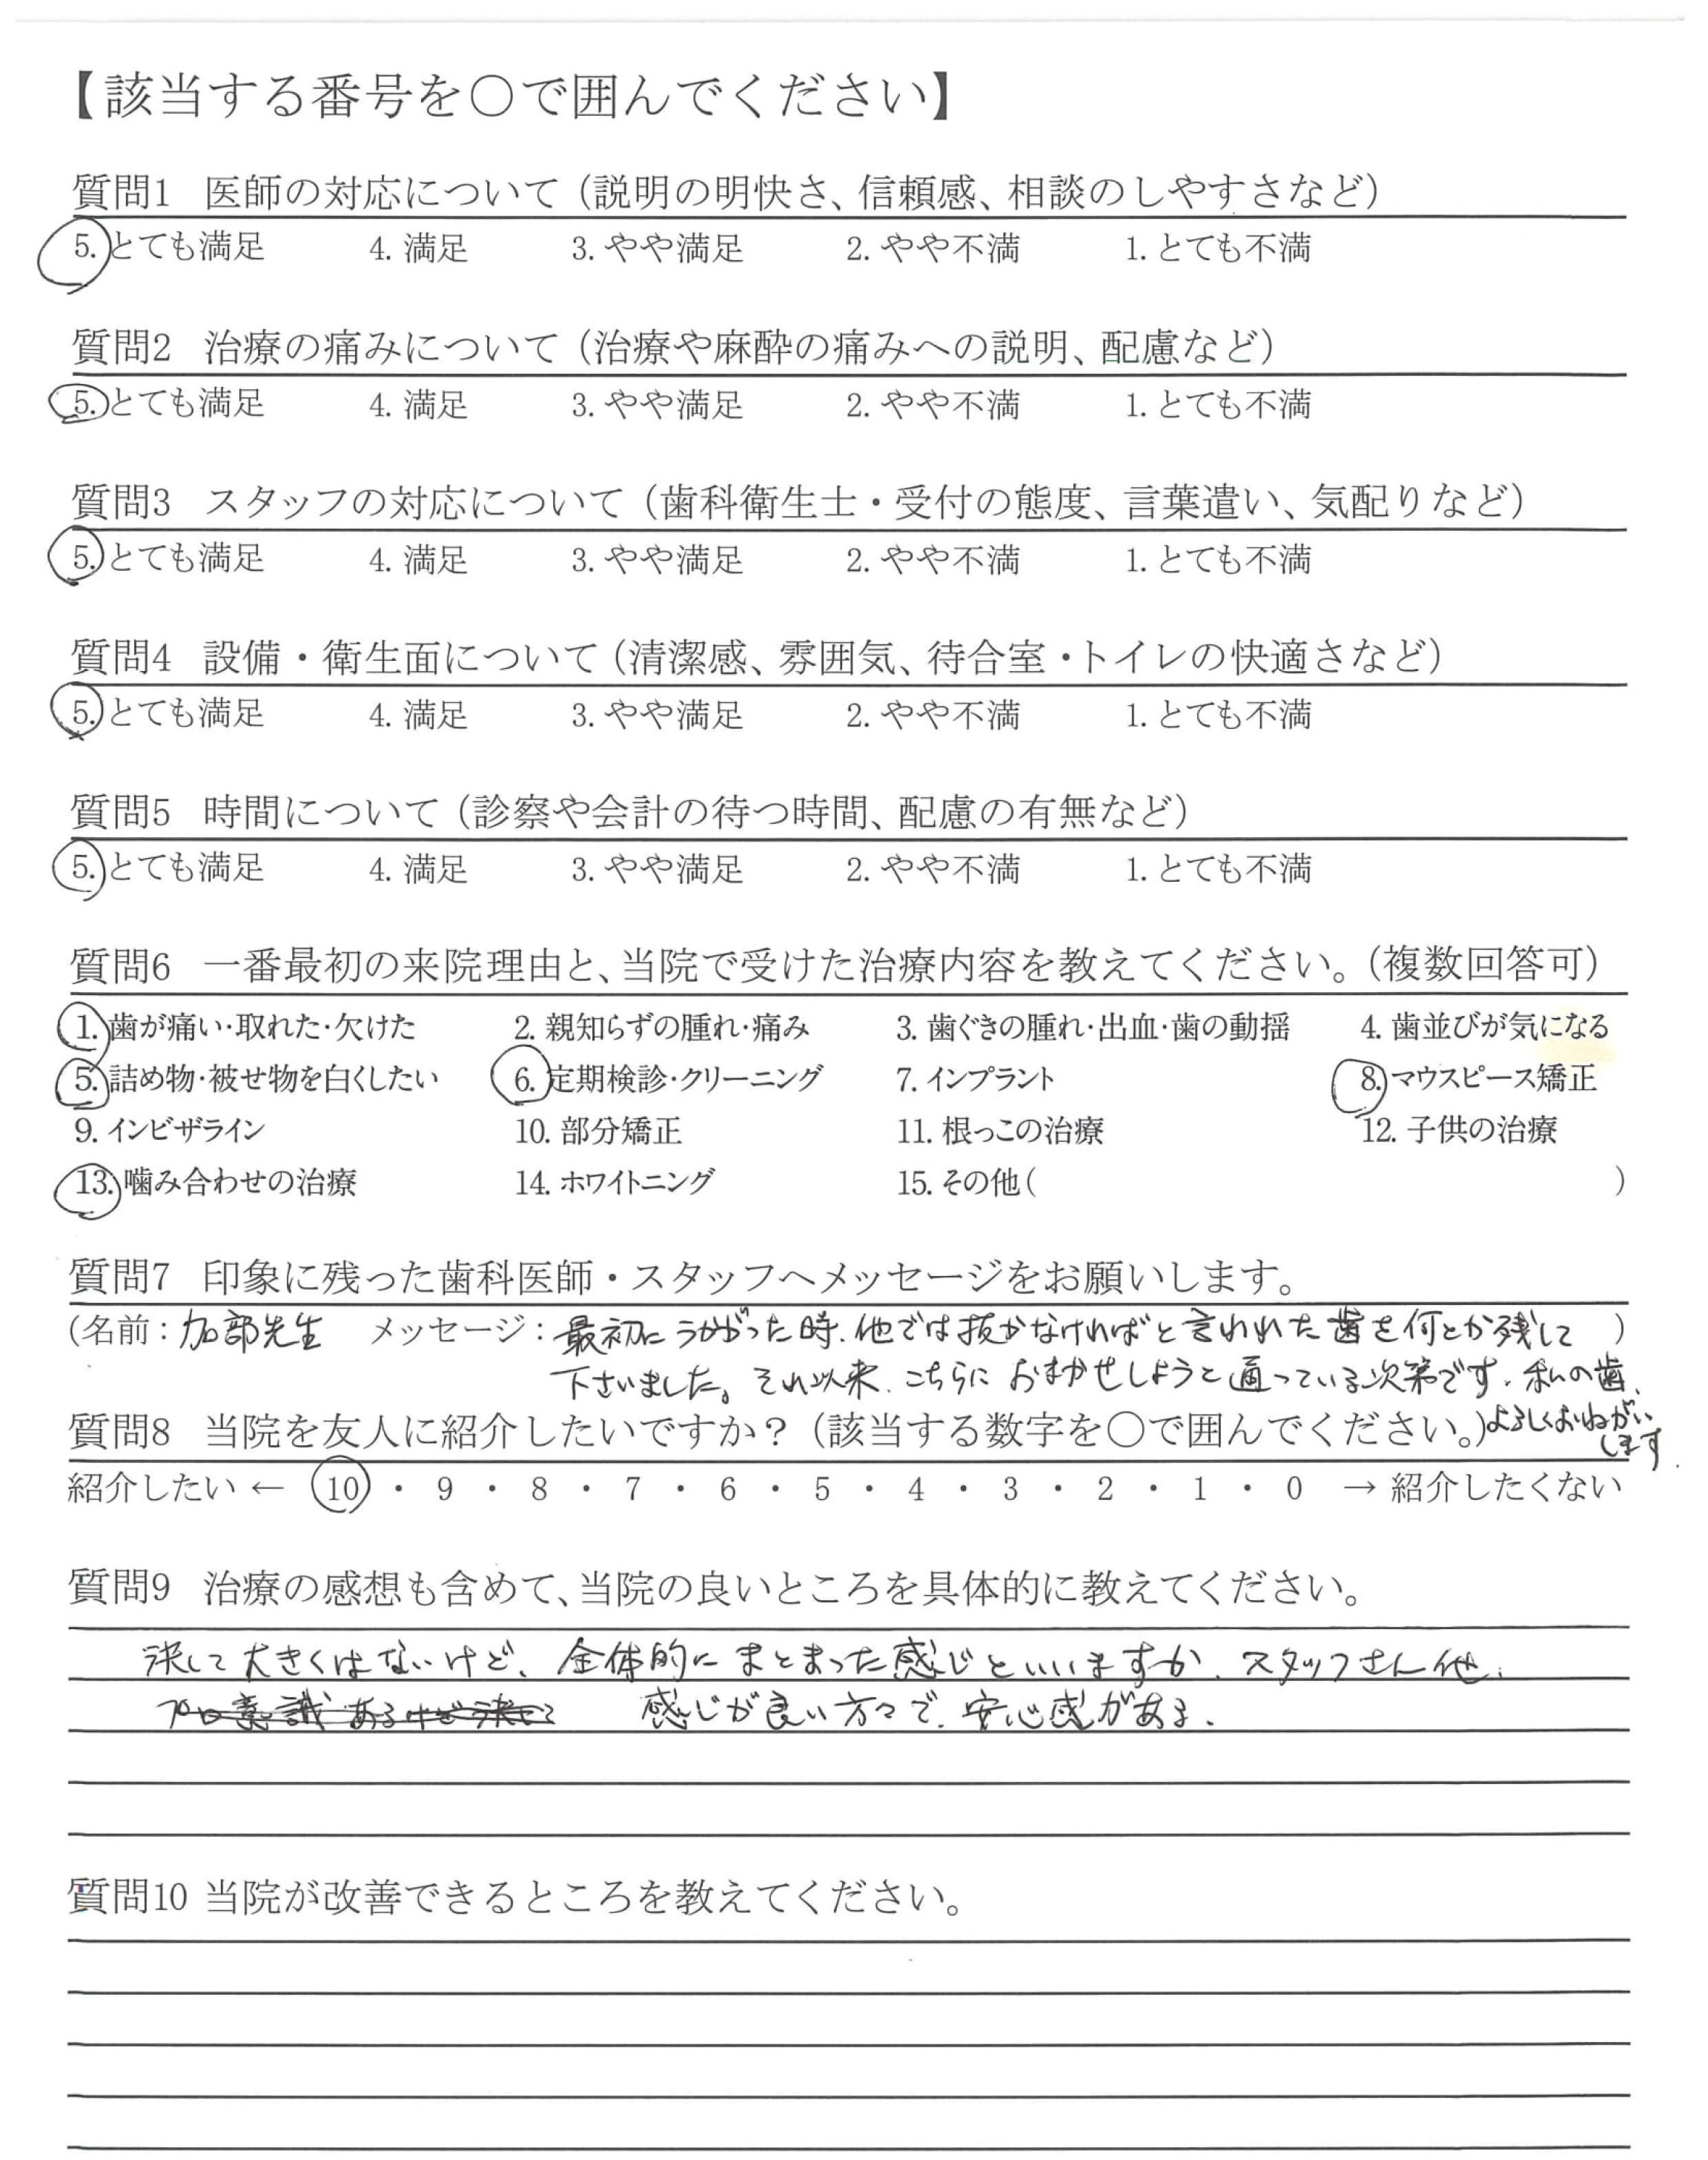 【該当する番号を〇で囲んでください】
質問1 医師の対応について（説明の明快さ、信頼感、相談のしやすさなど）
5. とても満足 4. 満足 3. やや満足 2. やや不満 1. とても不満
質問2 治療の痛みについて（治療や麻酔の痛みへの説明、配慮など）
5. とても満足 4. 満足 3. やや満足 2. やや不満 1. とても不満
質問3 スタッフの対応について（歯科衛生士・受付の態度、言葉遣い、気配りなど）
5. とても満足 4. 満足 3. やや満足 2. やや不満 1. とても不満
質問4 設備・衛生面について（清潔感、雰囲気、待合室・トイレの快適さなど）
5. とても満足 4. 満足 3. やや満足 2. やや不満 1. とても不満
質問5 時間について（診察や会計の待つ時間、配慮の有無など）
5. とても満足 4. 満足 3. やや満足 2. やや不満 1. とても不満
質問6 一番最初の来院理由と、当院で受けた治療内容を教えてください。（複数回答可）
1. 歯が痛い・取れた・欠けた 2. 親知らずの腫れ・痛み 3. 歯ぐきの腫れ・出血・歯の動揺 4. 歯並びが気になる
5. 詰め物・被せ物を白くしたい 6. 定期検診・クリーニング 7. インプラント 8. マウスピース矯正
9. インビザライン 10. 部分矯正 11. 根っこの治療 12. 子供の治療
13. 噛み合わせの治療 14. ホワイトニング 15. その他（ ）
質問7 印象に残った歯科医師・スタッフへメッセージをお願いします。
（名前：加部先生 メッセージ：最初にうかがった時、他では抜かなければと言われた歯を何とか残して ）
下さいました。それ以来、こちらにおまかせしようと通っている次第です。私の歯、
よろしくおねがい
します
質問8 当院を友人に紹介したいですか？（該当する数字を〇で囲んでください。）
紹介したい ← 10 ・ 9 ・ 8 ・ 7 ・ 6 ・ 5 ・ 4 ・ 3 ・ 2 ・ 1 ・ 0 → 紹介したくない
質問9 治療の感想も含めて、当院の良いところを具体的に教えてください。
決して大きくはないけど、全体的にまとまった感じといいますか、スタッフさん他、
プロ意識あるけど 感じが良い方々で、安心感がある。
質問10 当院が改善できるところを教えてください。